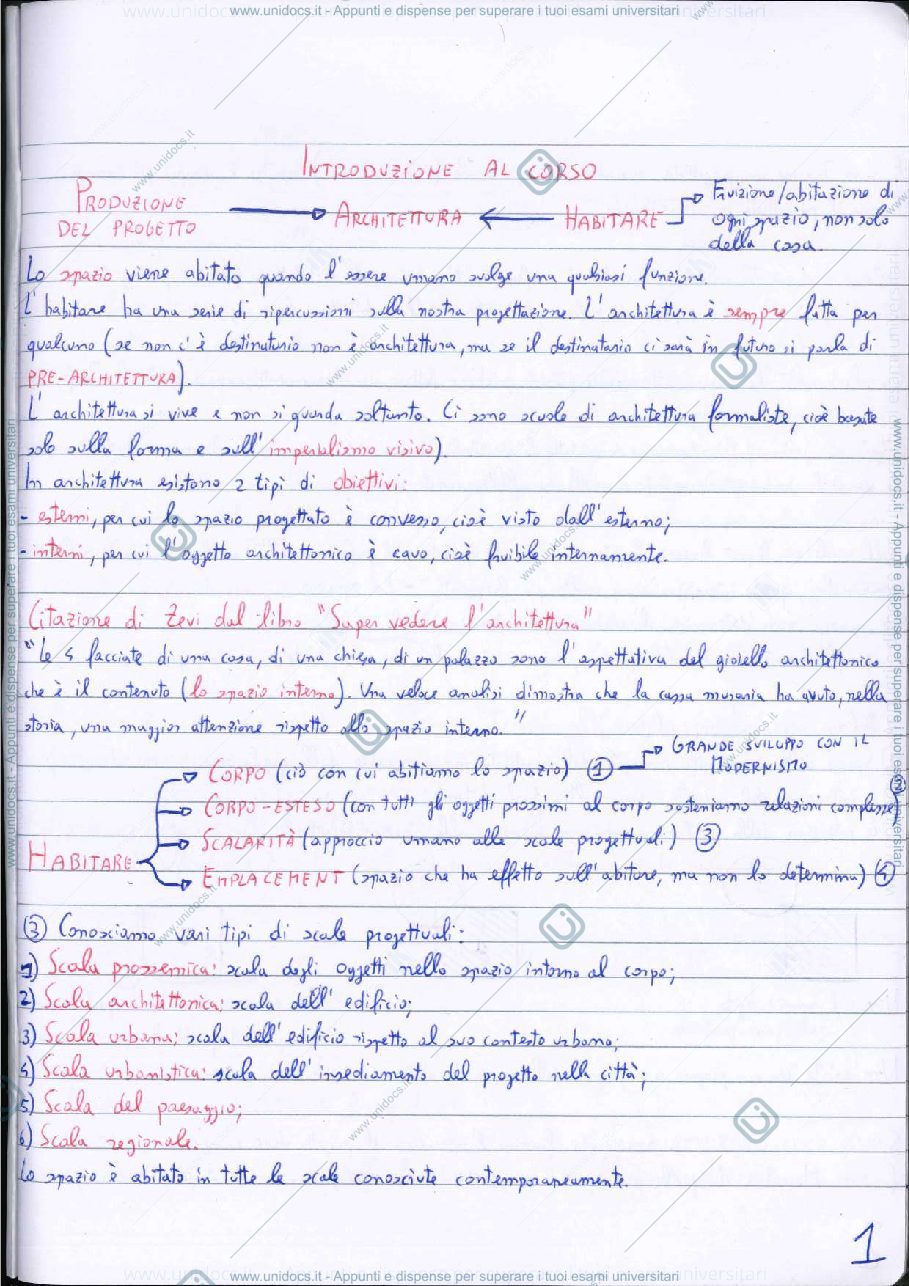 www.unidocs.it - Appunti e dispense per superare i tuoi esami universitari
INTRODUZIONE AL CORSO
PRODUZIONE DEL PROGETTO → ARCHITETTURA ← HABITARE → Fruizione/abitazione di
ogni spazio, non solo
della casa.
Lo spazio viene abitato quando l'essere umano svolge una qualsiasi funzione.
L'habitare ha una serie di ripercussioni sulla nostra progettazione. L'architettura è sempre fatta per
qualcuno (se non c'è destinatario non è architettura, ma se il destinatario ci sarà in futuro si parla di
PRE-ARCHITETTURA).
L'architettura si vive e non si guarda soltanto. Ci sono scuole di architettura formaliste, cioè basate
solo sulla forma e sull'imperialismo visivo).
In architettura esistono 2 tipi di obiettivi:
- esterni, per cui lo spazio progettato è convesso, cioè visto dall'esterno;
- interni, per cui l'oggetto architettonico è cavo, cioè fruibile internamente.
Citazione di Zevi dal libro "Saper vedere l'architettura"
"Le 4 facciate di una casa, di una chiesa, di un palazzo sono l'aspettativa del gioiello architettonico
che è il contenuto (lo spazio interno). Una veloce analisi dimostra che la cassa muraria ha avuto, nella
storia, una maggior attenzione rispetto allo spazio interno."
HABITARE
→ CORPO (ciò con cui abitiamo lo spazio) ① → GRANDE SVILUPPO CON IL
MODERNISMO
→ CORPO-ESTESO (con tutti gli oggetti prossimi al corpo sosteniamo relazioni complesse) ②
→ SCALARITÀ (approccio umano alle scale progettuali) ③
→ EMPLACEMENT (spazio che ha effetto sull'abitare, ma non lo determina) ④
③ Conosciamo vari tipi di scale progettuali:
1) Scala prossemica: scala degli oggetti nello spazio intorno al corpo;
2) Scala architettonica: scala dell'edificio;
3) Scala urbana: scala dell'edificio rispetto al suo contesto urbano;
4) Scala urbanistica: scala dell'insediamento del progetto nella città;
5) Scala del paesaggio;
6) Scala regionale.
Lo spazio è abitato in tutte le scale conosciute contemporaneamente.
1
www.unidocs.it - Appunti e dispense per superare i tuoi esami universitari